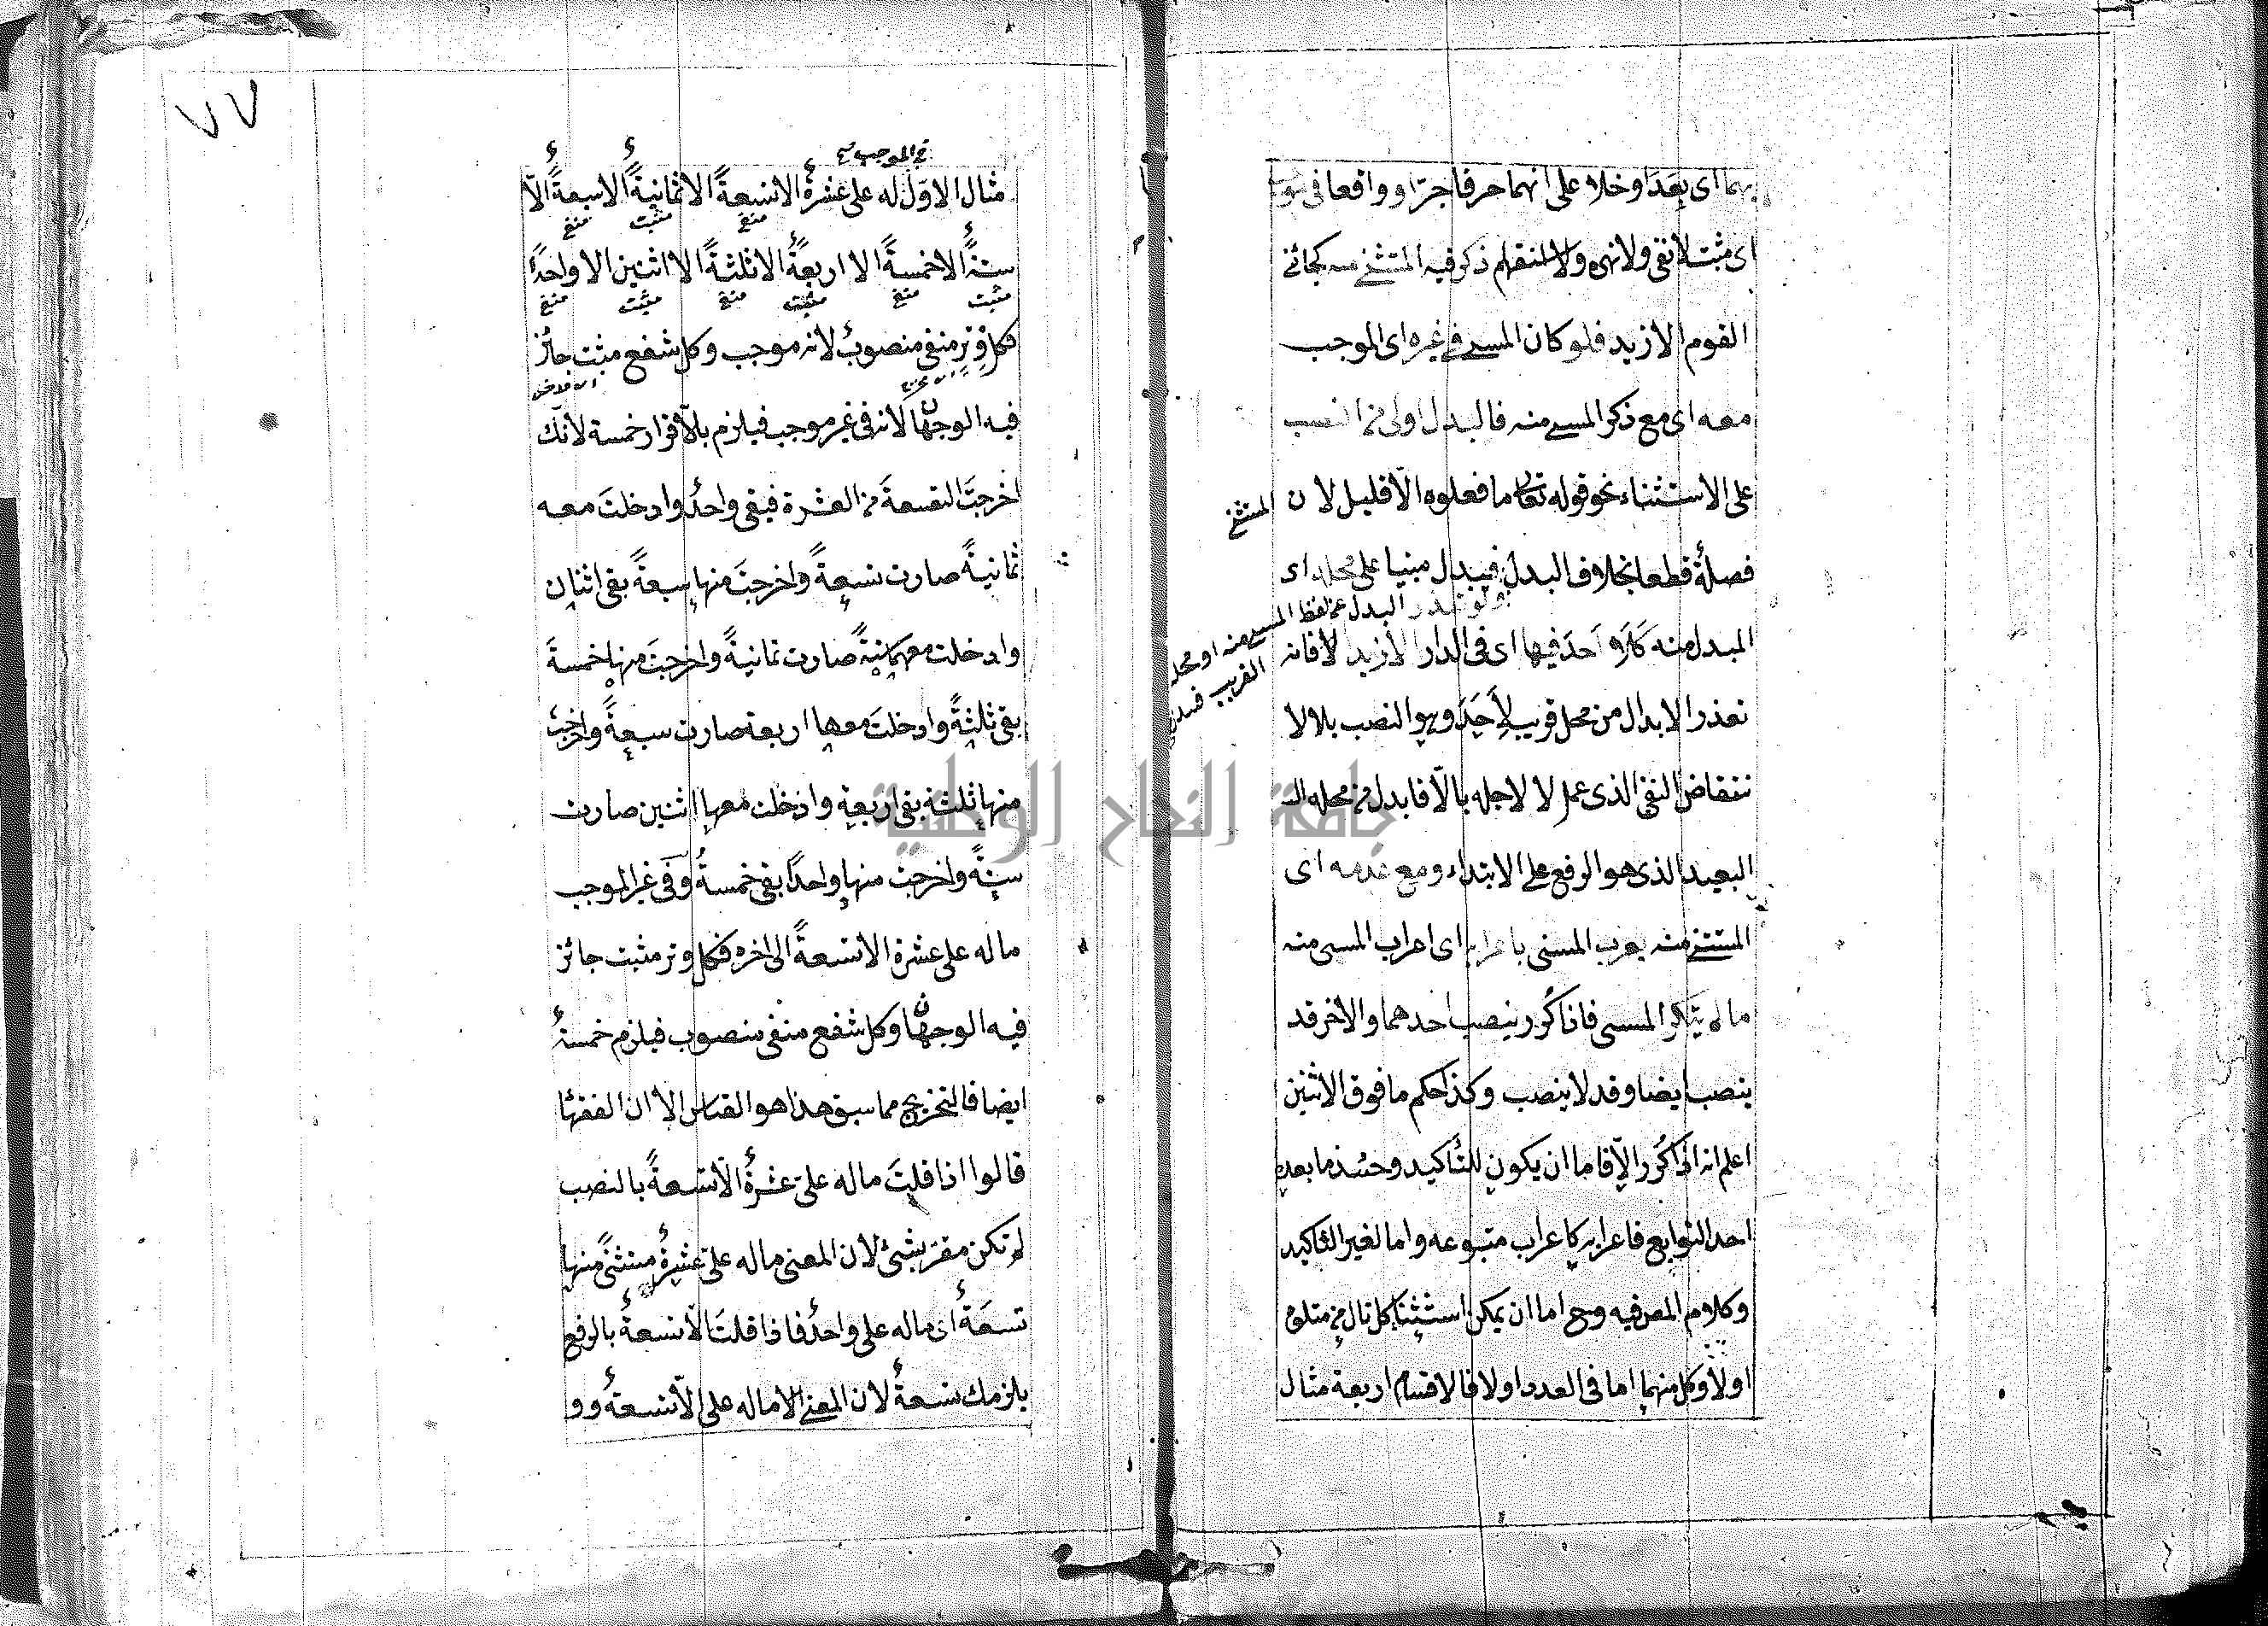 بهما اى بعدا وخلا على انهما حرفا جرّ او واقعا فى
اى مثبت لا نفى ولا نهى ولا ذكر فيه المستثنى منه كجائنى
القوم الا زيد فلو كان المسـ فى غيره اى الموجب
معه اى مع ذكر المسـ منه فالبدل اولى من النصب
على الاستثناء نحو قوله تعالى ما فعلوه الّا قليل لان المستثنى
فضلة قطعا بخلاف البدل فيبدل مبنيا على محله اى
البدل لفظ المسـ منه او محله القريب
المبدل منه احد فيها اى فى الدار الا زيد لا فانه
تعذر الابدال من محل قريب لاحد وهو النصب بلا لا
نتقاض النفى الذى عمل لا لاجله بالّا فابدل من محله
البعيد الذى هو الرفع على الابتداء ومع عدمه اى
المستثنى منه يعرب المسـنى باعرابه اى اعراب المسـى منه
ما لم يتكرر المسـى فاذا كرر ينصب احدهما والاخر قد
ينصب ايضا وقد لا ينصب وكذا حكم ما فوق الاثنين
اعلم انه اذا كرر الّا فاما ان يكون للتأكيد وحينئذ ما بعده
احد التوابع فاعرابه كاعراب متبوعه واما لغير التاكيد
وكلام المص فيه وح اما ان يمكن استثناء كل تال من متلوه
اولا وكل منهما اما فى العدد اولا فالاقسام اربعة مثال
٧٧
فى الموجب
مثال الاوّل له على عشرة الا تسعةً الا ثمانيةً الا سبعةً الّا
منفى مثبت منفى
ستةً الا خمسةً الا اربعةً الا ثلثةً الا اثنين الا واحدًا
مثبت منفى مثبت منفى مثبت منفى
فكل وتر منفى منصوب لانه موجب وكل شفع مثبت جائز
فيه الوجهان لانه فى غير موجب فيلزم بالاقرار خمسة لانّك
اخرجتَ التسعةَ من العشرة فبقى واحدٌ وادخلتَ معه
ثمانيةً صارت تسعةً واخرجتَ منها سبعةً بقى اثنان
وادخلت معهما ستةً صارت ثمانيةً واخرجتَ منها خمسةً
بقى ثلثةً وادخلتَ معها اربعة صارت سبعةً واخرجت
منها ثلثة بقى اربعة وادخلت معها اثنين صارت
ستةً واخرجت منها واحدًا بقى خمسةٌ وفى غير الموجب
ما له على عشرة الا تسعةً الى اخره فكل وتر مثبت جائز
فيه الوجهان وكل شفع منفى منصوب فيلزم خمسةٌ
ايضا فالتخريج مما سبق هذا هو القياس الا ان الفقها
قالوا اذا قلتَ ما له علىّ عشرةٌ الّا تسعةً بالنصب
لم تكن مقرّ بشئ لان المعنى ما له علىّ عشرةٌ مستثنىً منها
تسعةٌ اى ما له على واحدٌ فاذا قلتَ الّا تسعةٌ بالرفع
يلزمك تسعةٌ لان المعنى الا ما له على الّا تسعةٌ وو
جامعة النجاح الوطنية